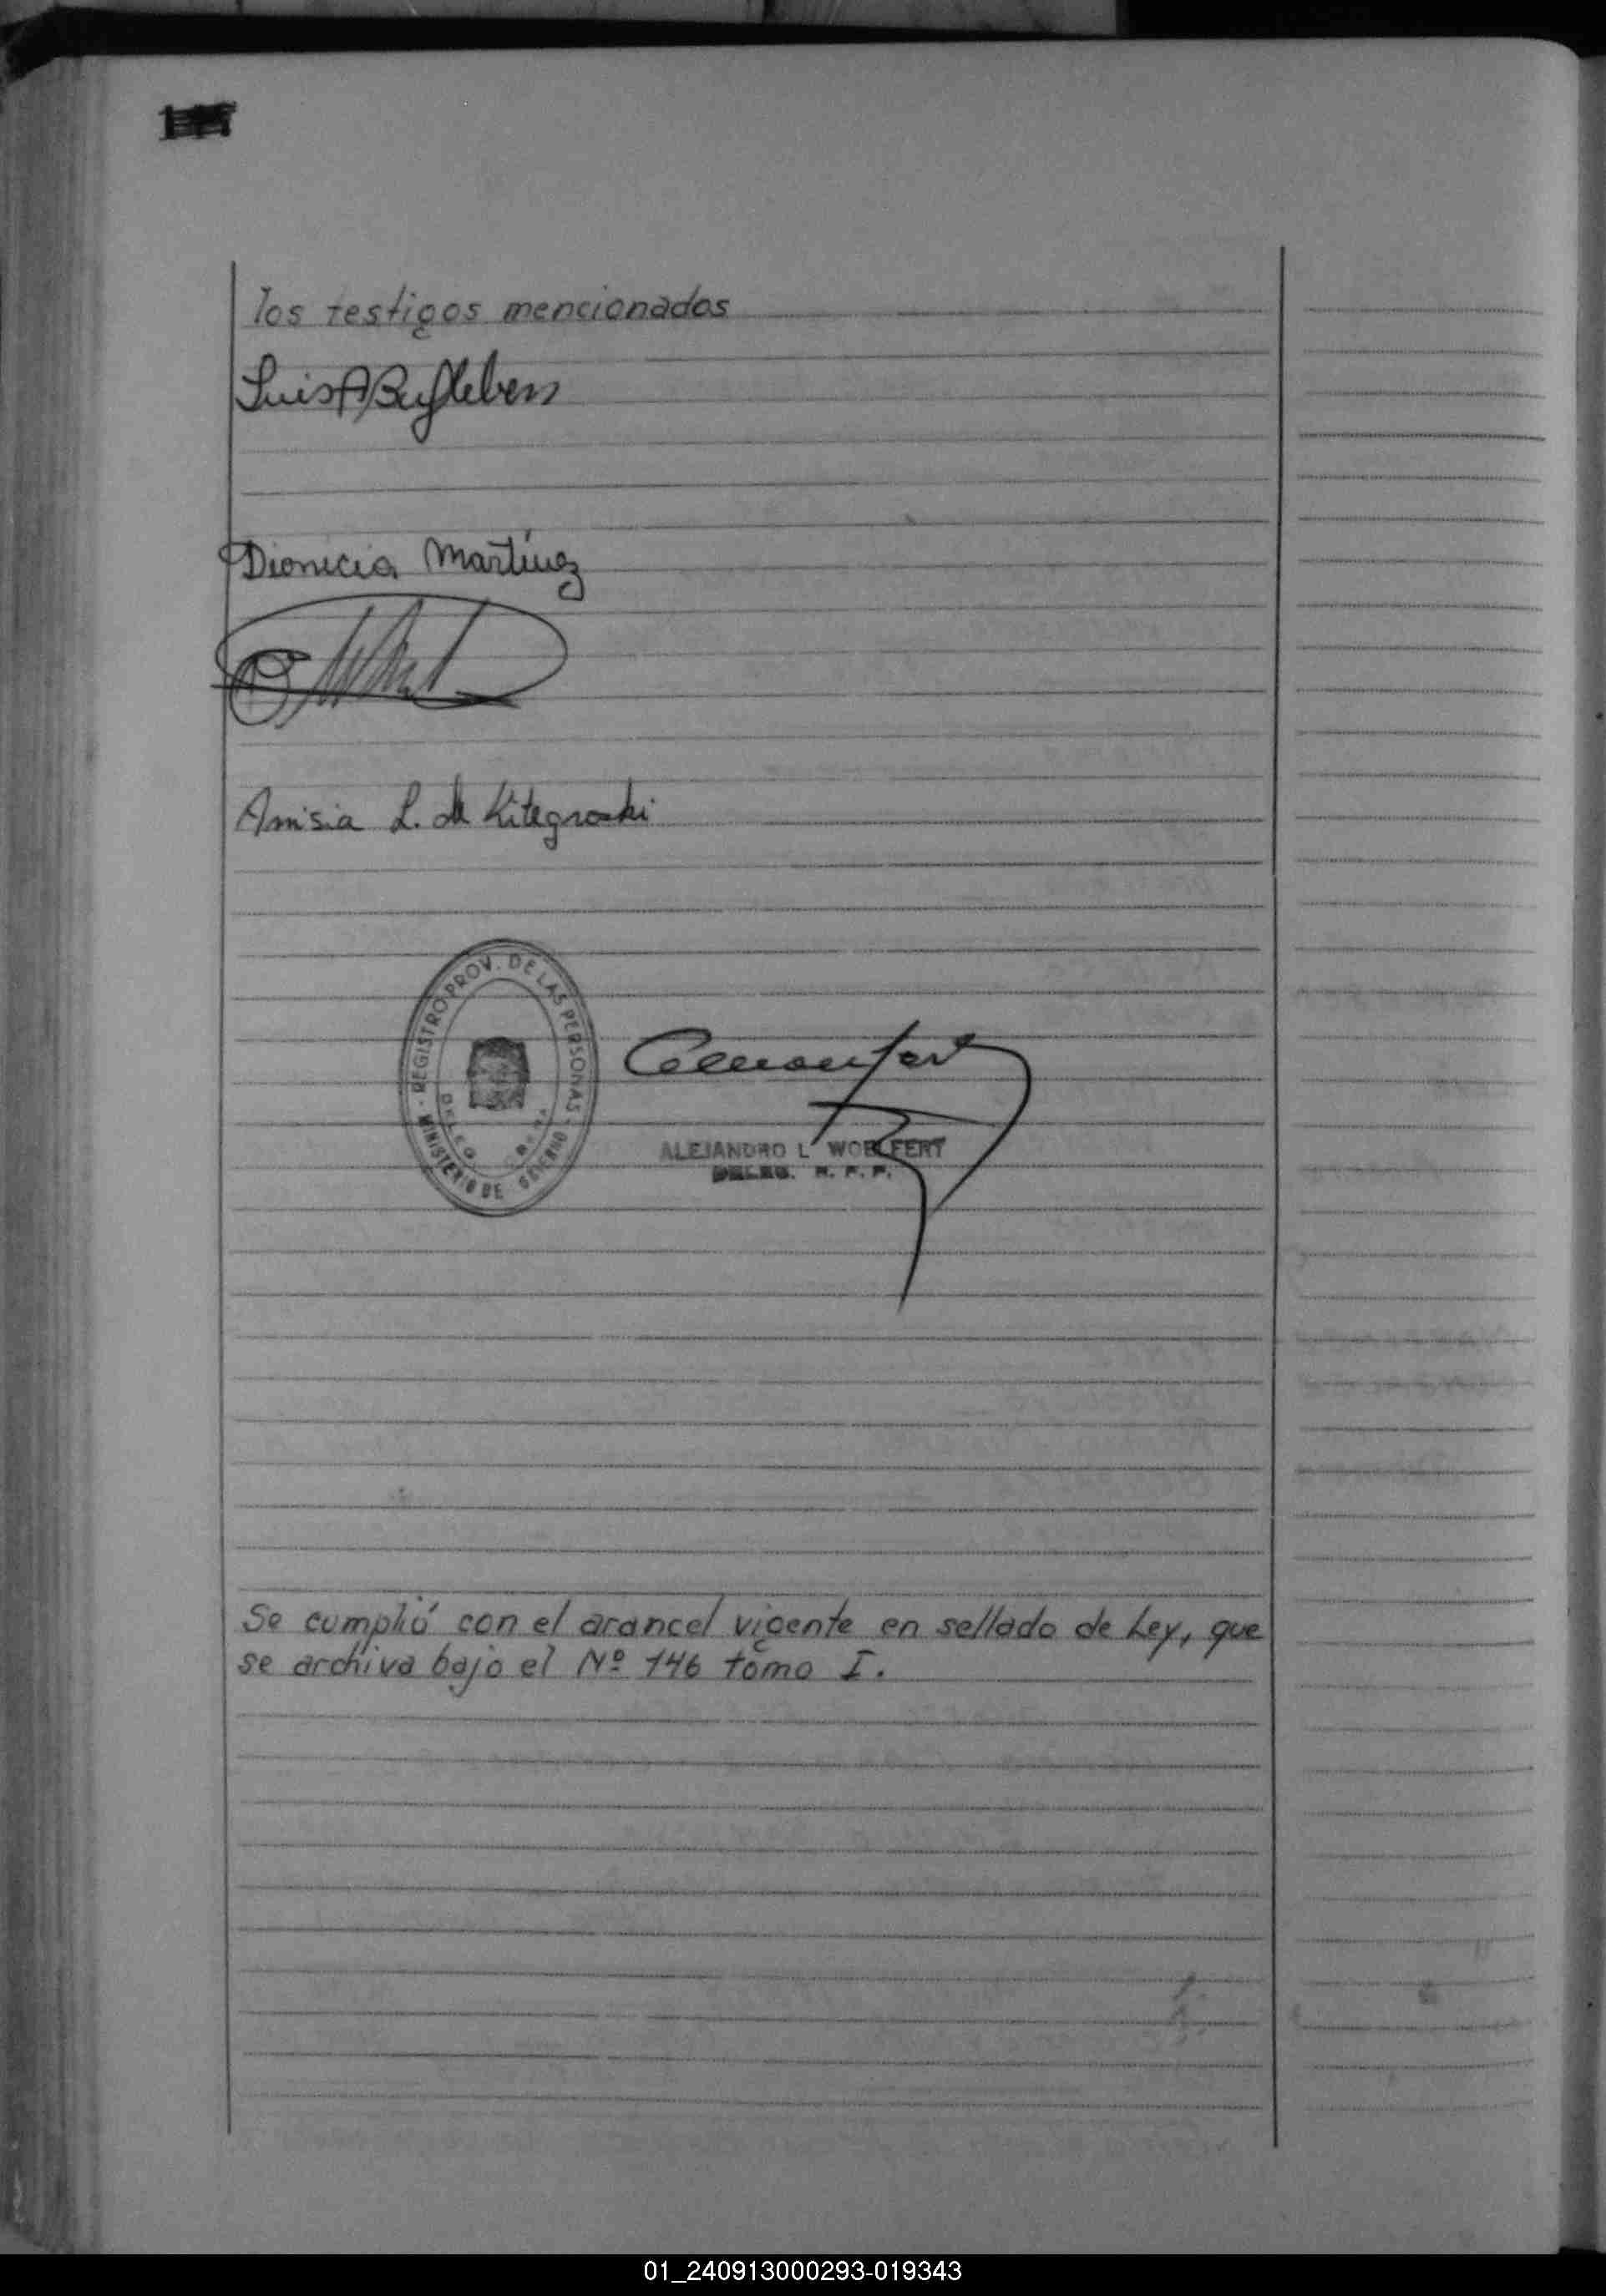 los testigos mencionados
Luis A
Dionicia Martínez
Amisia L. de Kitegroski
REGISTRO PROV. DE LAS PERSONAS
MINISTERIO DE GOBIERNO
ALEJANDRO L WOELFERT
DELEG. R. P. P.
Se cumplió con el arancel vigente en sellado de Ley, que
se archiva bajo el Nº 146 tomo I.
01_240913000293-019343